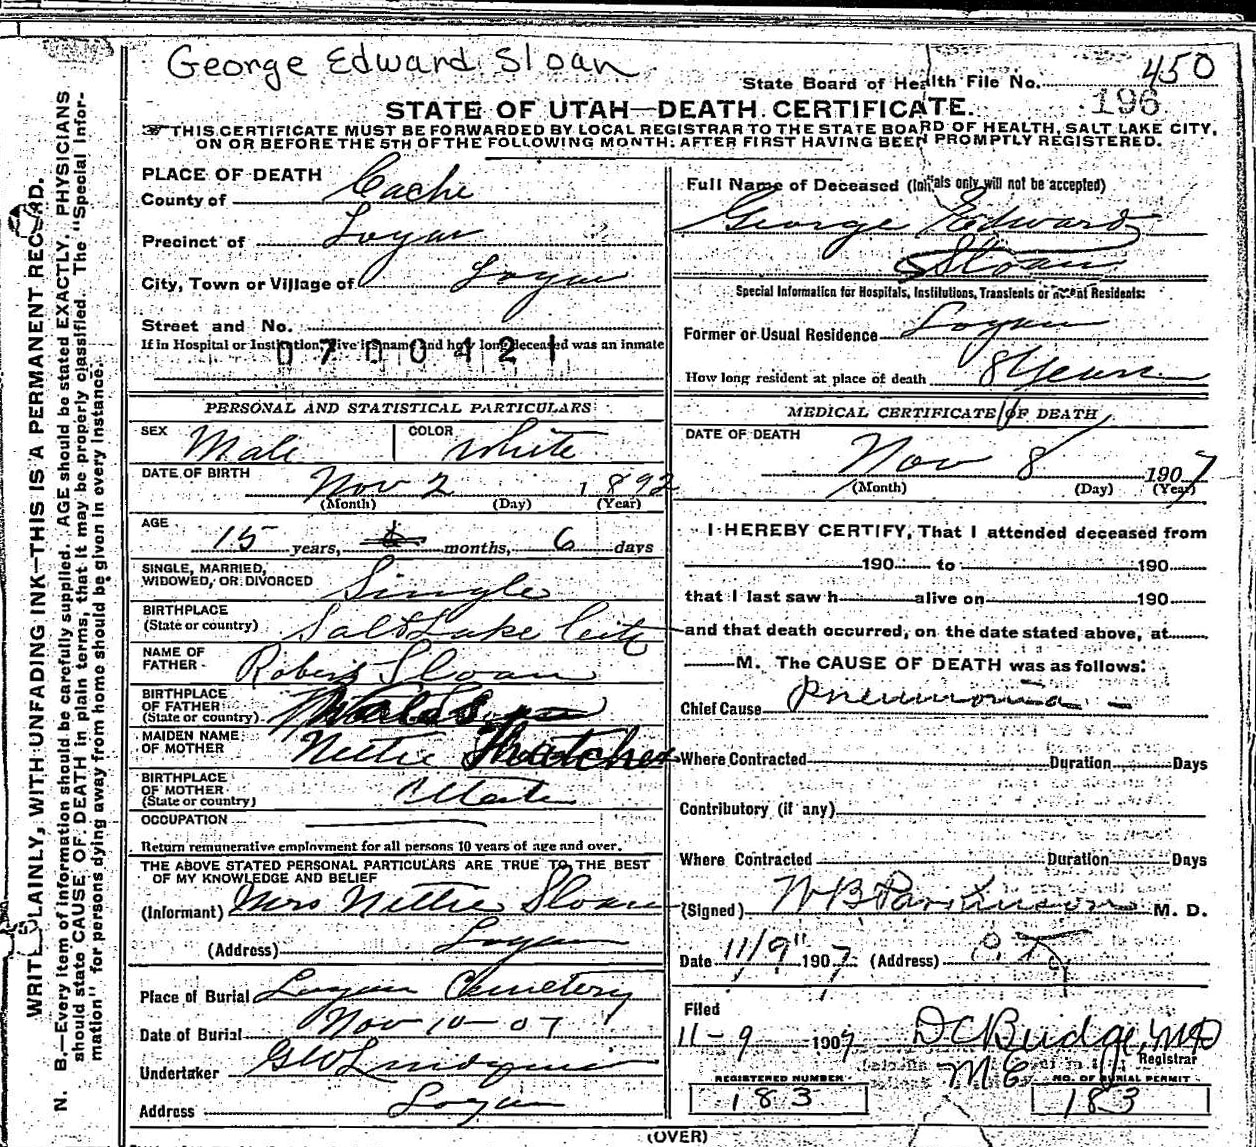 George Edward Sloan
State Board of Health File No. 450
196
STATE OF UTAH—DEATH CERTIFICATE.
THIS CERTIFICATE MUST BE FORWARDED BY LOCAL REGISTRAR TO THE STATE BOARD OF HEALTH, SALT LAKE CITY,
ON OR BEFORE THE 5TH OF THE FOLLOWING MONTH: AFTER FIRST HAVING BEEN PROMPTLY REGISTERED.
WRITE PLAINLY, WITH UNFADING INK—THIS IS A PERMANENT RECORD.
N. B.—Every item of information should be carefully supplied. AGE should be stated EXACTLY, PHYSICIANS
should state CAUSE OF DEATH in plain terms, that it may be properly classified. The "Special Infor-
mation" for persons dying away from home should be given in every instance.
PLACE OF DEATH
County of Cache
Precinct of Logan
City, Town or Village of Logan
Street and No.
If in Hospital or Institution, give its name and how long deceased was an inmate
0700421
PERSONAL AND STATISTICAL PARTICULARS
SEX Male COLOR White
DATE OF BIRTH Nov 2 1892
(Month) (Day) (Year)
AGE 15 years, months, 6 days
SINGLE, MARRIED,
WIDOWED, OR DIVORCED Single
BIRTHPLACE
(State or country) Salt Lake City
NAME OF
FATHER Robert Sloan
BIRTHPLACE
OF FATHER
(State or country)
MAIDEN NAME
OF MOTHER Nettie Thatcher
BIRTHPLACE
OF MOTHER
(State or country) Utah
OCCUPATION
Return remunerative employment for all persons 10 years of age and over.
THE ABOVE STATED PERSONAL PARTICULARS ARE TRUE TO THE BEST
OF MY KNOWLEDGE AND BELIEF
(Informant) Mrs Nettie Sloan
(Address) Logan
Place of Burial Logan Cemetery
Date of Burial Nov 10-07
Undertaker GW Lindquist
Address Logan
Full Name of Deceased (Initials only will not be accepted)
George Edward
Sloan
Special Information for Hospitals, Institutions, Transients or Recent Residents:
Former or Usual Residence Logan
How long resident at place of death 8 Years
MEDICAL CERTIFICATE OF DEATH
DATE OF DEATH
Nov 8 1907
(Month) (Day) (Year)
I HEREBY CERTIFY, That I attended deceased from
190 to 190
that I last saw h alive on 190
and that death occurred, on the date stated above, at
M. The CAUSE OF DEATH was as follows:
Chief Cause Pneumonia
Where Contracted Duration Days
Contributory (if any)
Where Contracted Duration Days
(Signed) W B Parkinson M. D.
Date 11/9" 1907 (Address)
Filed
11-9 1907 D C Budge, MD
Registrar
REGISTERED NUMBER
183
NO. OF BURIAL PERMIT
183
(OVER)